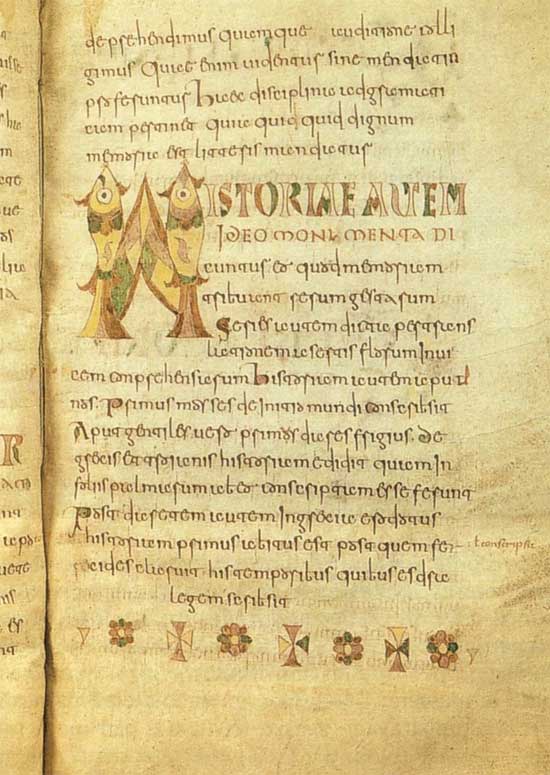 deprehendimus quam que auditione colli
gimus Quae enim videntur sine mendatio
proferuntur Haec disciplina ad gramati
cam pertinet quia quid quid dignum
memoria est litteris mandatur
HISTORIAE AUTEM
IDEO MONUMENTA DI
cuntur eo quod memoriam
tribuant rerum gestarum
Series autem dicta per trans
lationem a sertis florum Invi
cem conprehensarum historiam autem aput
nos. Primus moyses de Initio mundi conscribsit
Aput gentiles vero primus dares frigius. de
grecis et troianis historiam edidit quam In
foliis palmarum ab eo conscriptam esse ferunt
Post daretem autem In grecia erodotus
historiam primus abitus est post quem fer
recides claruit his temporibus quibus esdras
legem scribsit